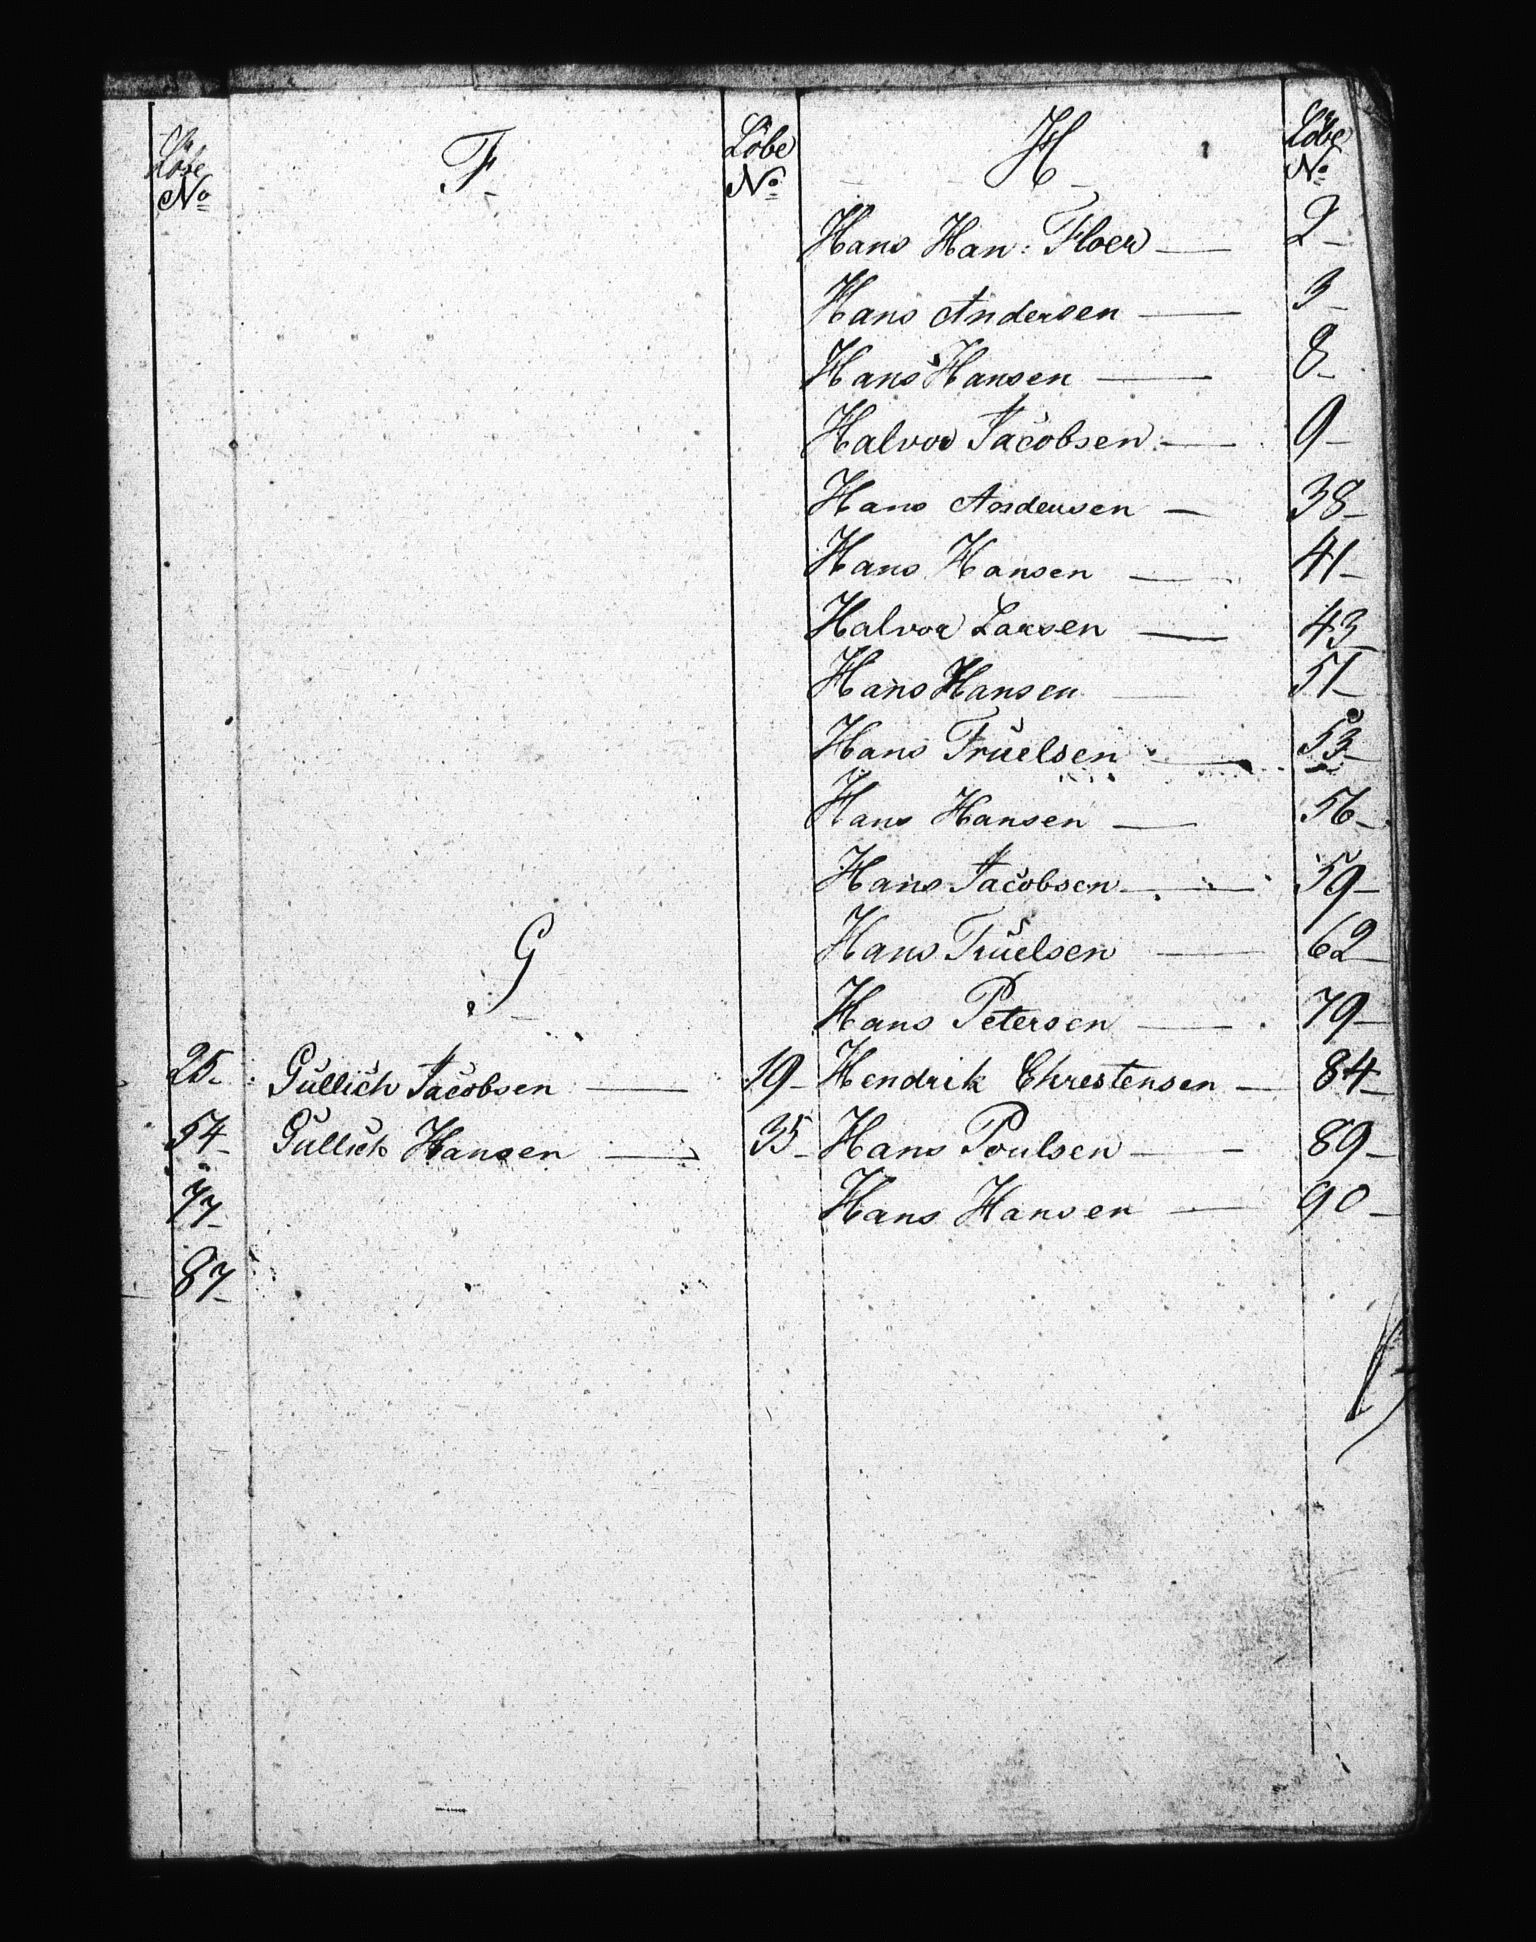 Löbe
No
25-
54-
77-
87-
F-
G-
Löbe
No
Gullich Jacobsen — 19-
Gullich Hansen — 35-
H-
Löbe
No
Hans Han: Floer — 2-
Hans Andersen — 3-
Hans Hansen — 8-
Halvor Jacobsen — 9-
Hans Andersen — 38-
Hans Hansen — 41-
Halvor Larsen — 43-
Hans Hansen — 51-
Hans Truelsen — 53-
Hans Hansen — 56-
Hans Jacobsen — 59-
Hans Truelsen — 62-
Hans Petersen — 79-
Hendrik Chrestensen — 84-
Hans Poulsen — 89-
Hans Hansen — 90-